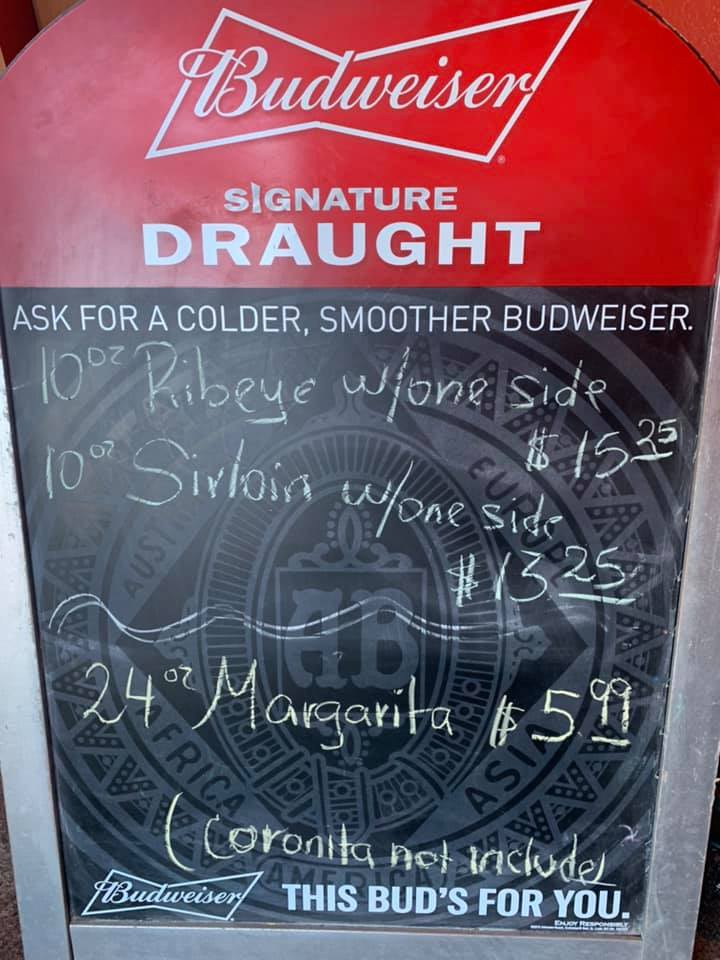 Budweiser
SIGNATURE
DRAUGHT
ASK FOR A COLDER, SMOOTHER BUDWEISER.
10oz Ribeye w/one side
$15.25
10oz Sirloin w/one side
$13.25
AUST
EUROP
AB
24oz Margarita $5.99
AFRICA
ASIA
(Coronita not include)
AMERICA
Budweiser THIS BUD'S FOR YOU.
ENJOY RESPONSIBLY